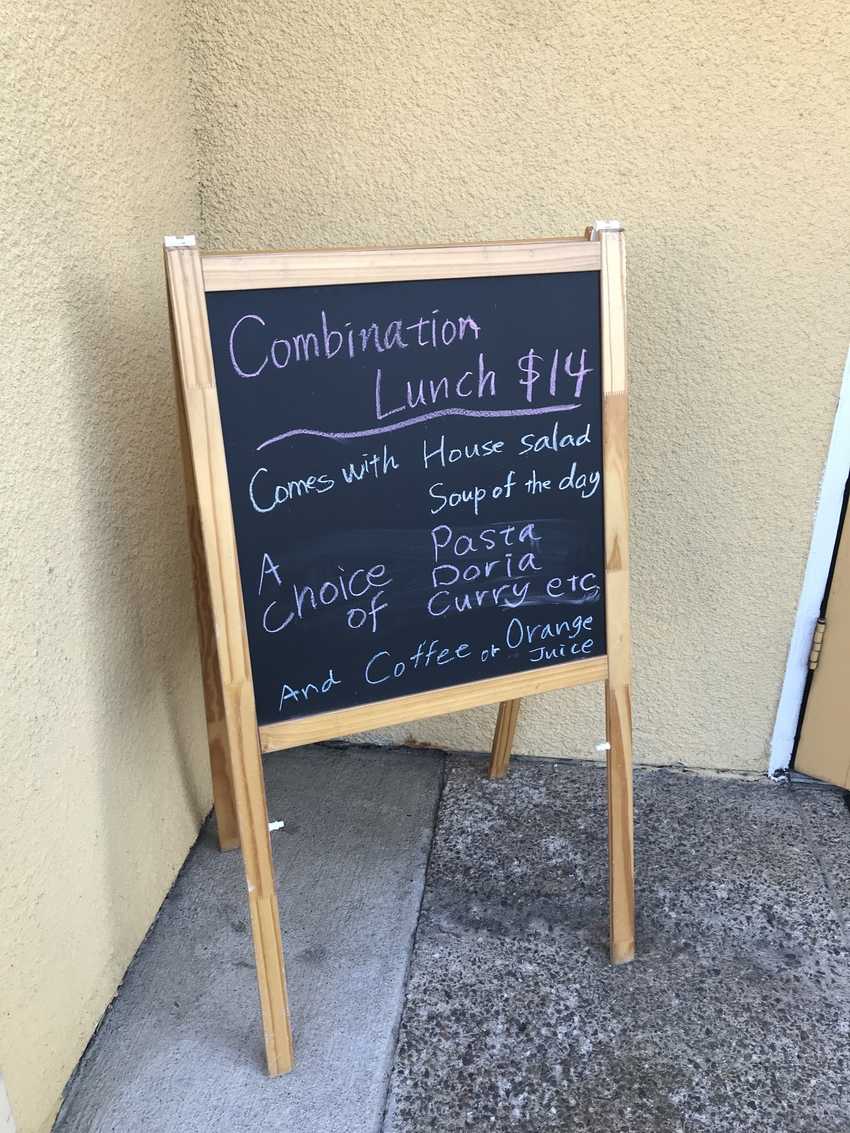 Combination
Lunch $14
Comes with House salad
Soup of the day
A Choice of Pasta
Doria
Curry etc
And Coffee or Orange Juice